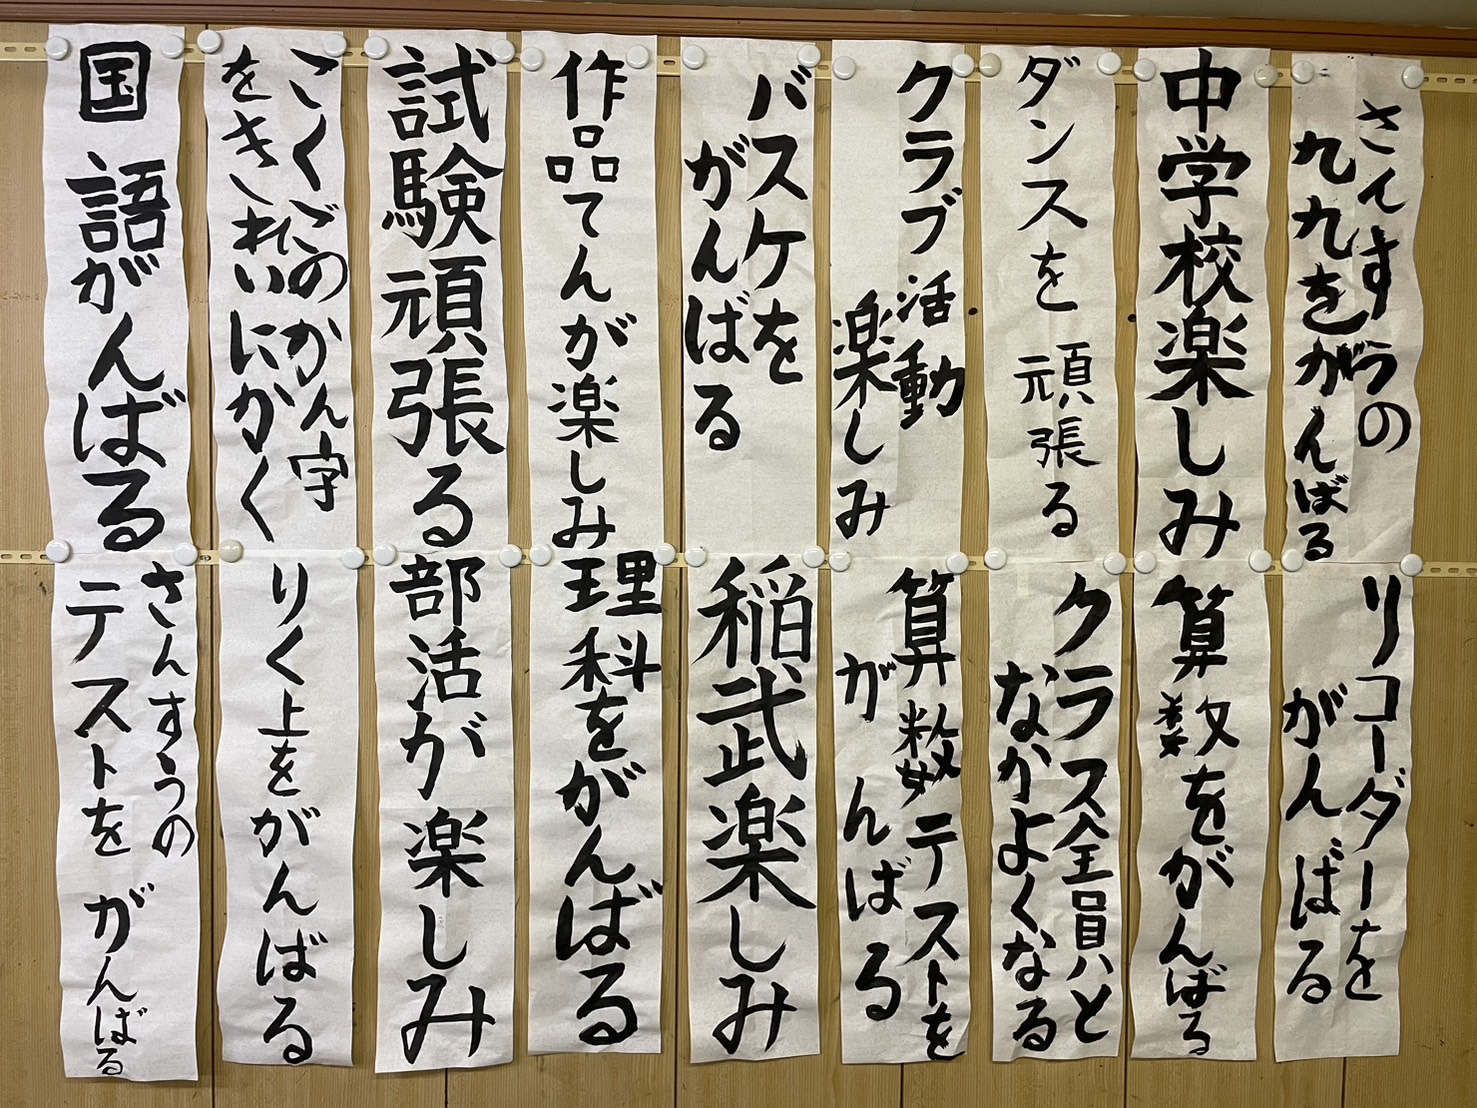 さんすうの
九九をがんばる
中学校楽しみ
ダンスを頑張る
クラブ活動
楽しみ
バスケを
がんばる
作品てんが楽しみ
試験頑張る
こくごのかん字
をきれいにかく
国語がんばる
リコーダーを
がんばる
算数をがんばる
クラス全員と
なかよくなる
算数テストを
がんばる
稲武楽しみ
理科をがんばる
部活が楽しみ
りく上をがんばる
さんすうの
テストをがんばる